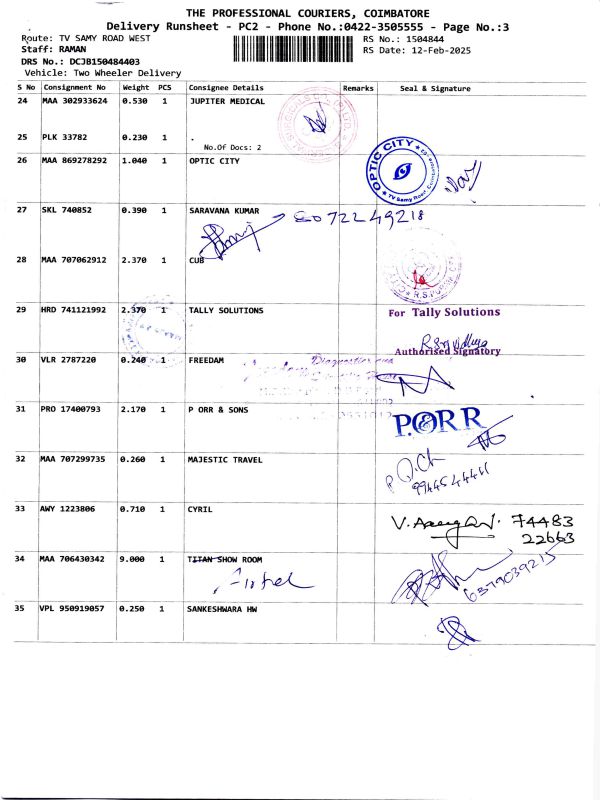 THE PROFESSIONAL COURIERS, COIMBATORE
Delivery Runsheet - PC2 - Phone No.:0422-3505555 - Page No.:3
Route: TV SAMY ROAD WEST
RS No.: 1504844
Staff: RAMAN
RS Date: 12-Feb-2025
DRS No.: DCJB150484403
Vehicle: Two Wheeler Delivery
S No Consignment No Weight PCS Consignee Details Remarks Seal & Signature
24 MAA 302933624 0.530 1 JUPITER MEDICAL
25 PLK 33782 0.230 1 .
No.Of Docs: 2
26 MAA 869278292 1.040 1 OPTIC CITY
OPTIC CITY
TV Samy Road
27 SKL 740852 0.390 1 SARAVANA KUMAR
28 MAA 707062912 2.370 1 CUB
29 HRD 741121992 2.370 1 TALLY SOLUTIONS
For Tally Solutions
Authorised Signatory
30 VLR 2787220 0.240 1 FREEDAM
Diagnostics
31 PRO 17400793 2.170 1 P ORR & SONS
P.ORR
32 MAA 707299735 0.260 1 MAJESTIC TRAVEL
33 AWY 1223806 0.710 1 CYRIL
74483
22663
34 MAA 706430342 9.000 1 TITAN SHOW ROOM
6379039215
35 VPL 950919057 0.250 1 SANKESHWARA HW